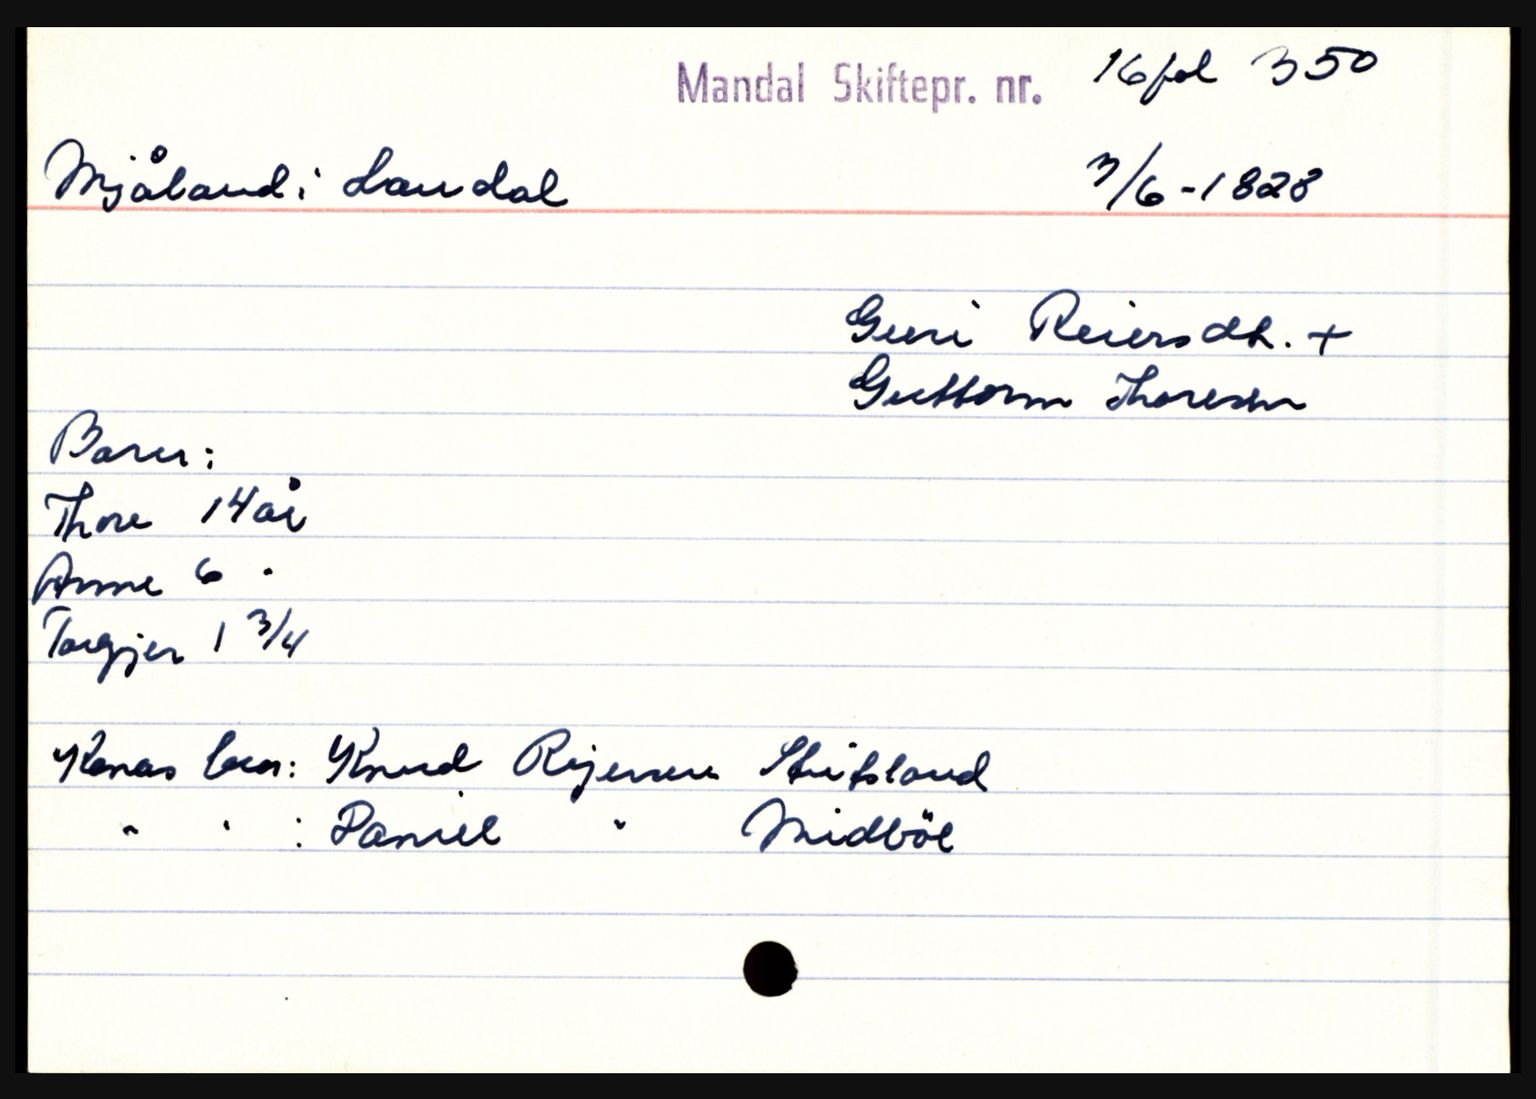 Mandal Skiftepr. nr. 16 fol 350
Mjåland i Laudal 3/6-1828
Guri Reiersdt. +
Guttorm Thoresen
Barn:
Thore 14 år
Anne 6 "
Torgjer 1 3/4
Konas bror: Knud Rejersen Stuvsland
" " : Daniel " Midböe